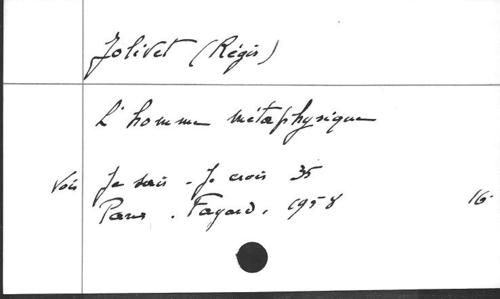 Jolivet (Régis)
L'homme métaphysique
Voir Je sais - Je crois 35
Paris. Fayard. 1958 16.